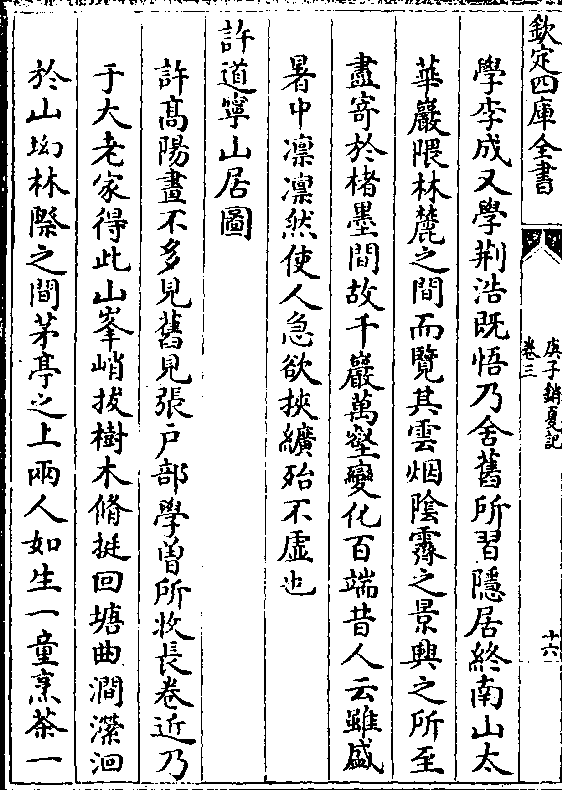 欽定四庫全書
庚子銷夏記
卷三
十六
學李成又學荆浩既悟乃舍舊所習隱居終南山太
華巖隈林麓之間而覽其雲烟陰霽之景興之所至
盡寄於楮墨間故千巖萬壑變化百端昔人云雖盛
暑中凛凛然使人急欲挾纊殆不虛也
許道寧山居圖
許高陽畫不多見舊見張戶部學曽所收長卷近乃
于大老家得此山峯峭拔樹木脩挺回塘曲澗瀠洄
於山坳林際之間茅亭之上兩人如生一童烹茶一